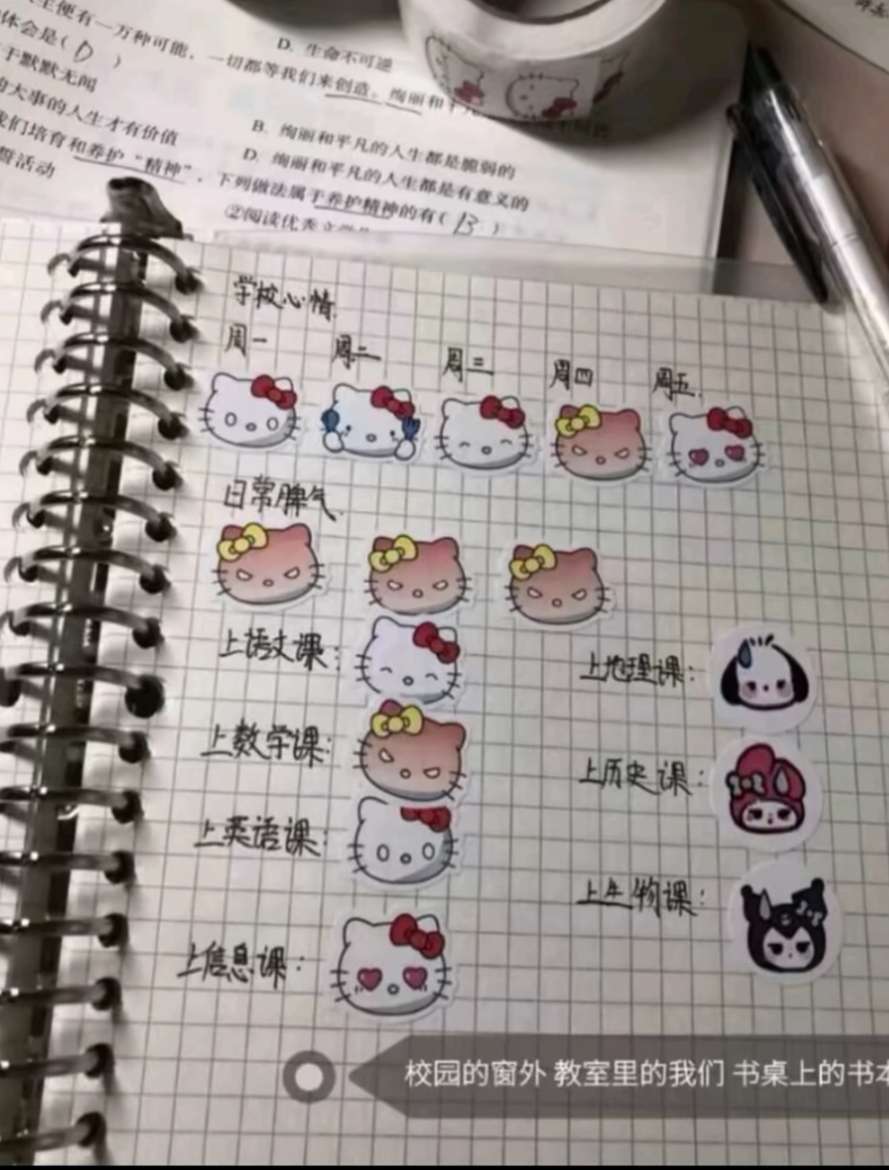 生便有一万种可能，一切都等我们来创造。绚丽和平凡
体会是（D）
D. 生命不可逆
于默默无闻
大事的人生才有价值
B. 绚丽和平凡的人生都是脆弱的
D. 绚丽和平凡的人生都是有意义的
我们培育和养护“精神”，下列做法属于养护精神的有（B）
誓活动
②阅读优秀文学
学校心情
周一 周二 周三 周四 周五
日常脾气
上语文课：
上地理课：
上数学课：
上历史课：
上英语课：
上生物课：
上信息课：
校园的窗外 教室里的我们 书桌上的书本